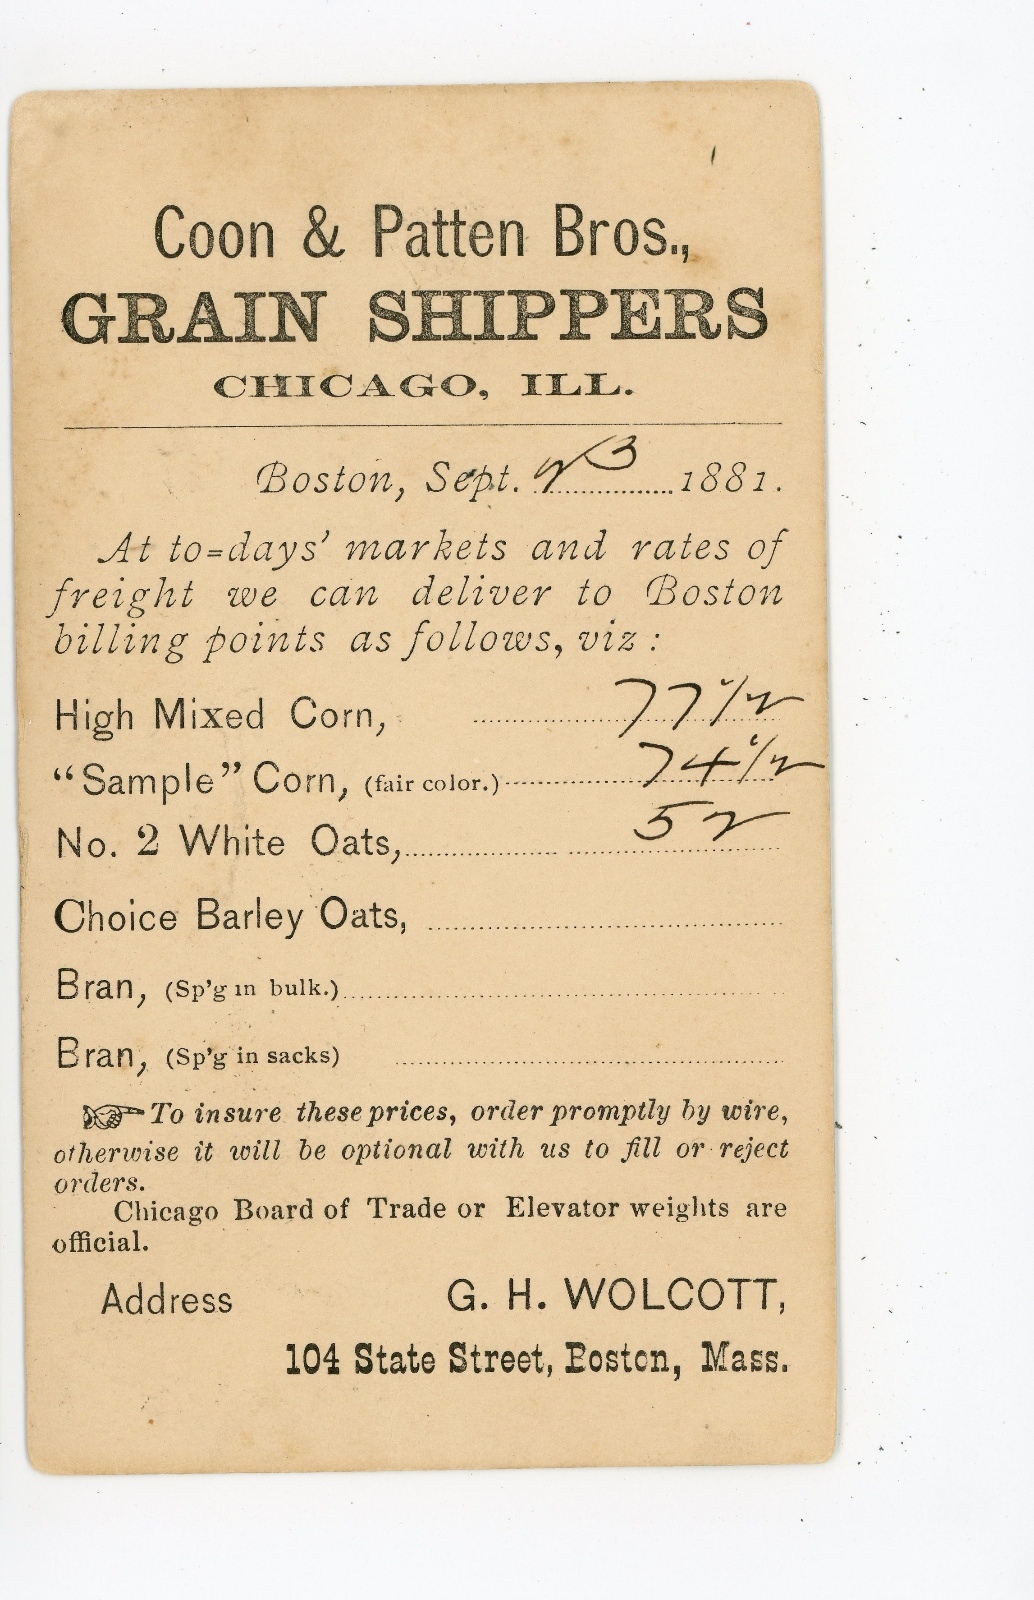 Coon & Patten Bros.,
GRAIN SHIPPERS
CHICAGO, ILL.
Boston, Sept. 23 1881.
At to=days' markets and rates of
freight we can deliver to Boston
billing points as follows, viz :
High Mixed Corn, 77 1/2
"Sample" Corn, (fair color.) 74 1/2
No. 2 White Oats, 52
Choice Barley Oats,
Bran, (Sp'g in bulk.)
Bran, (Sp'g in sacks)
☞ To insure these prices, order promptly by wire,
otherwise it will be optional with us to fill or reject
orders.
Chicago Board of Trade or Elevator weights are
official.
Address G. H. WOLCOTT,
104 State Street, Boston, Mass.